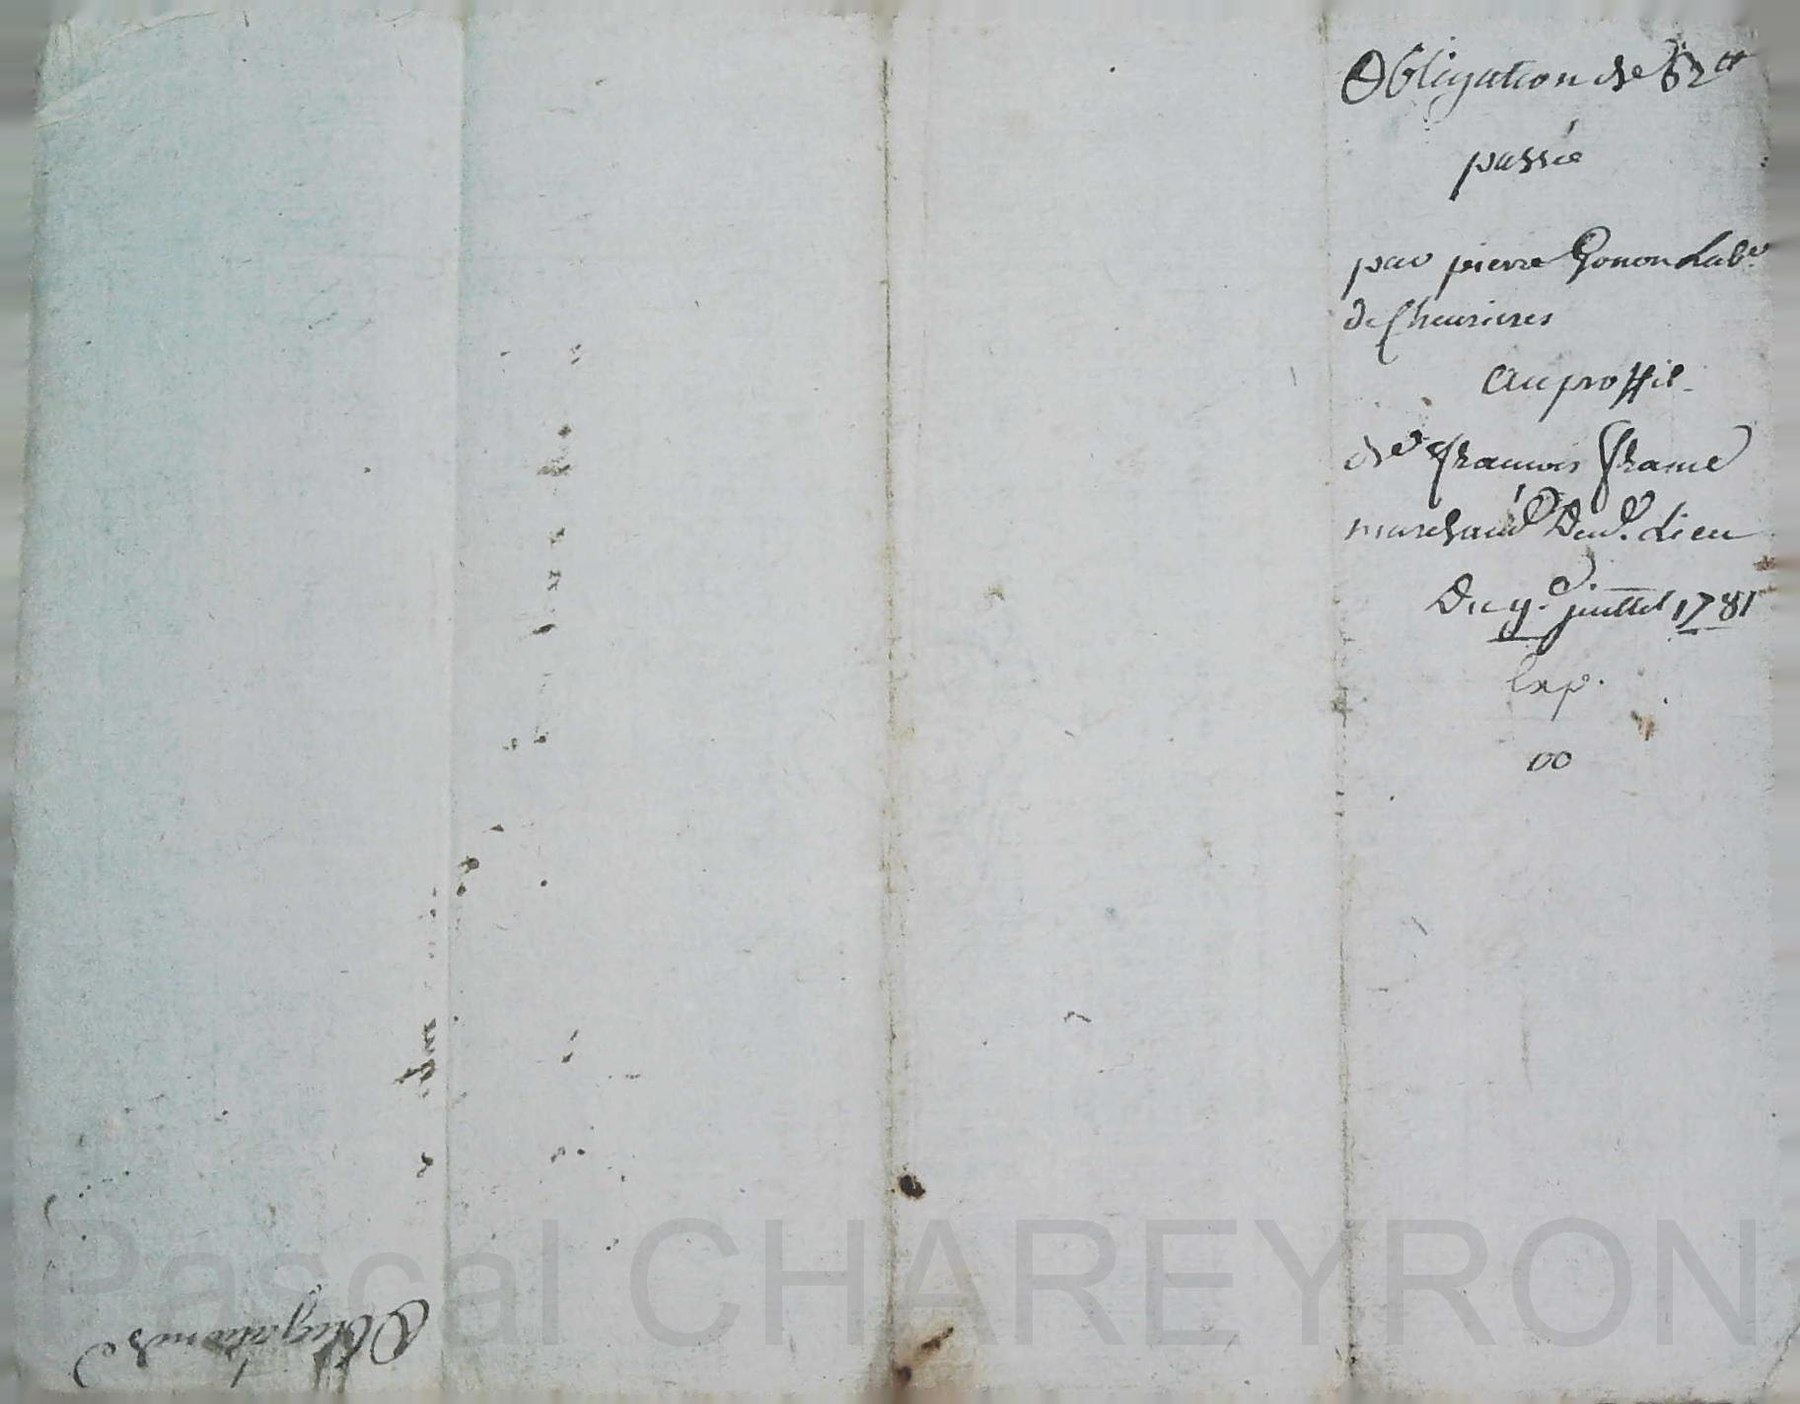 Obligation de 62 tt
passée
par pierre Gonon Lab.r
de Cheurieres
Au proffit
de francois frame
marchand Dud. Lieu
Du 9. juillet 1781
Exp.
Obligation de
Pascal CHAREYRON